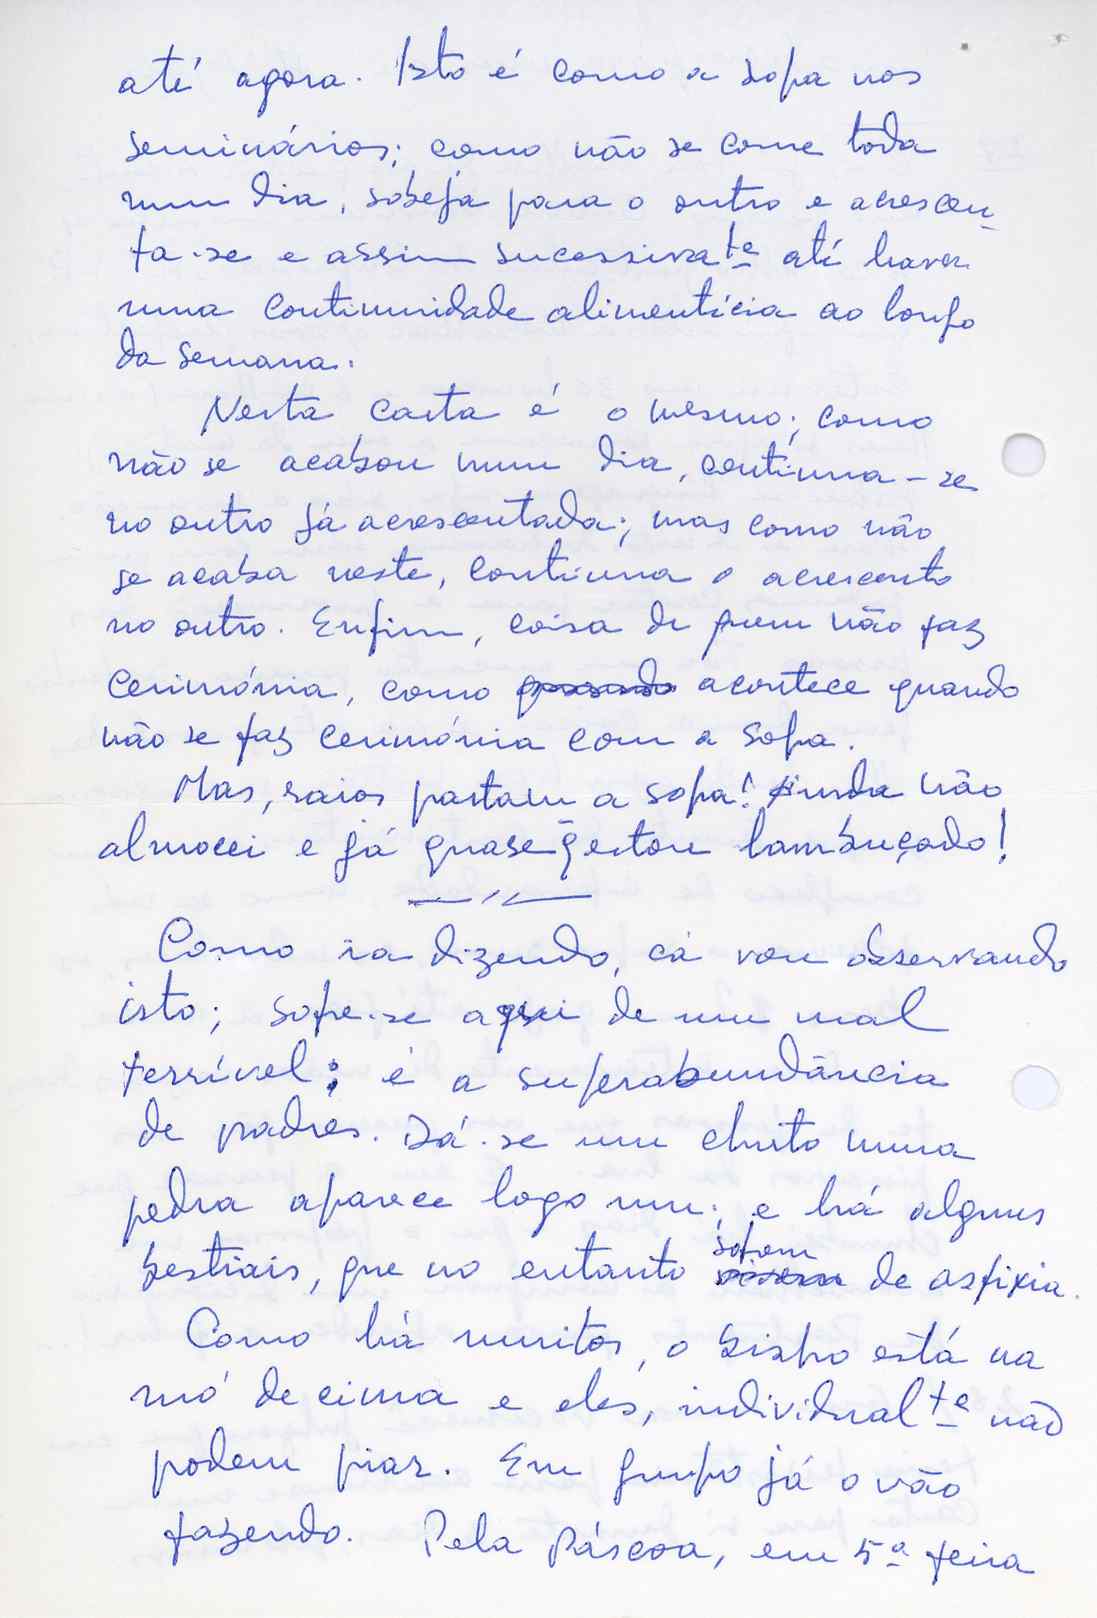 até agora. Isto é como a sopa nos
seminários; como não se come toda
num dia, sobeja para o outro e acrescen-
ta-se e assim sucessivate até haver
uma continuidade alimentícia ao longo
da semana.
Nesta carta é o mesmo; como
não se acabou num dia, continua-se
no outro já acrescentada; mas como não
se acaba neste, continua o acrescento
no outro. Enfim, coisa de quem não faz
cerimónia, como acontece quando
não se faz cerimónia com a sopa.
Mas, raios partam a sopa! Ainda não
almocei e já quase q̃ estou lambuçado!
Como ia dizendo, cá vou observando
isto; sofre-se aqui de um mal
terrível: é a superabundância
de padres. Dá-se um chuto numa
pedra aparece logo um; e há alguns
bestiais, que no entanto sofrem de asfixia.
Como há muitos, o bispo está na
mó de cima e eles, individualte não
podem piar. Em grupo já o vão
fazendo. Pela Páscoa, em 5ª feira